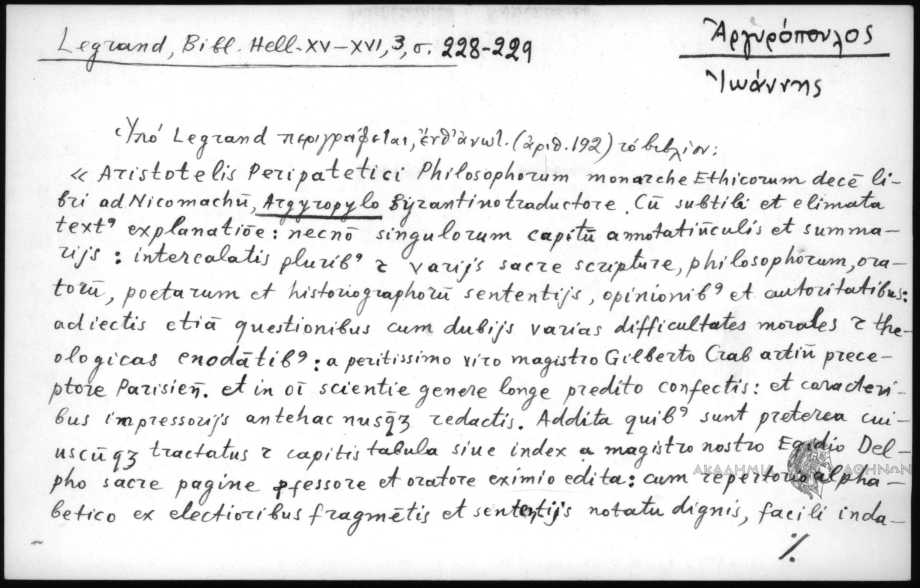 Legrand, Bibl. Hell. XV–XVI, 3, σ. 228-229
Ἀργυρόπουλος
Ἰωάννης
Ὑπό Legrand περιγράφεται, ἐνθ' ἀνωτ. (ἀριθ. 192) τό βιβλίον:
« Aristotelis Peripatetici Philosophorum monarche Ethicorum decē li-
bri ad Nicomachū, Argyropylo Byzantino traductore. Cū subtili et elimata
textꝰ explanatiōe: necnō singulorum capitū annotatiūculis et summa-
rijs: intercalatis pluribꝰ ⁊ varijs sacre scripture, philosophorum, ora-
torū, poetarum et historiographorū sententijs, opinionibꝰ et autoritatibus:
adiectis etiā questionibus cum dubijs varias difficultates morales ⁊ the-
ologicas enodātibꝰ: a peritissimo viro magistro Gilberto Crab artiū prece-
ptore Parisieñ. et in oī scientie genere longe predito confectis: et caracteri-
bus impressorijs antehac nusqꝫ redactis. Addita quibꝰ sunt preterea cui-
uscūqꝫ tractatus ⁊ capitis tabula siue index a magistro nostro Egidio Del-
pho sacre pagine ꝓfessore et oratore eximio edita: cum repertorio alpha-
betico ex electioribus fragmētis et sentētijs notatu dignis, facili inda-
ΑΚΑΔΗΜΙΑ ΑΘΗΝΩΝ
./.